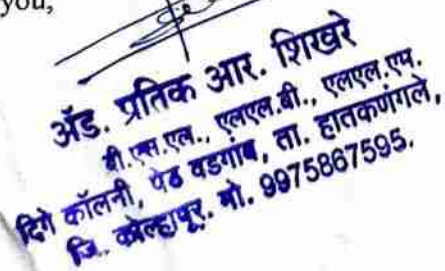 you,
अ‍ॅड. प्रतिक आर. शिखरे
बी.एस.एल., एलएल.बी., एलएल.एम.
दिगे कॉलनी, पेठ वडगांव, ता. हातकणंगले,
जि. कोल्हापूर. मो. 9975867595.